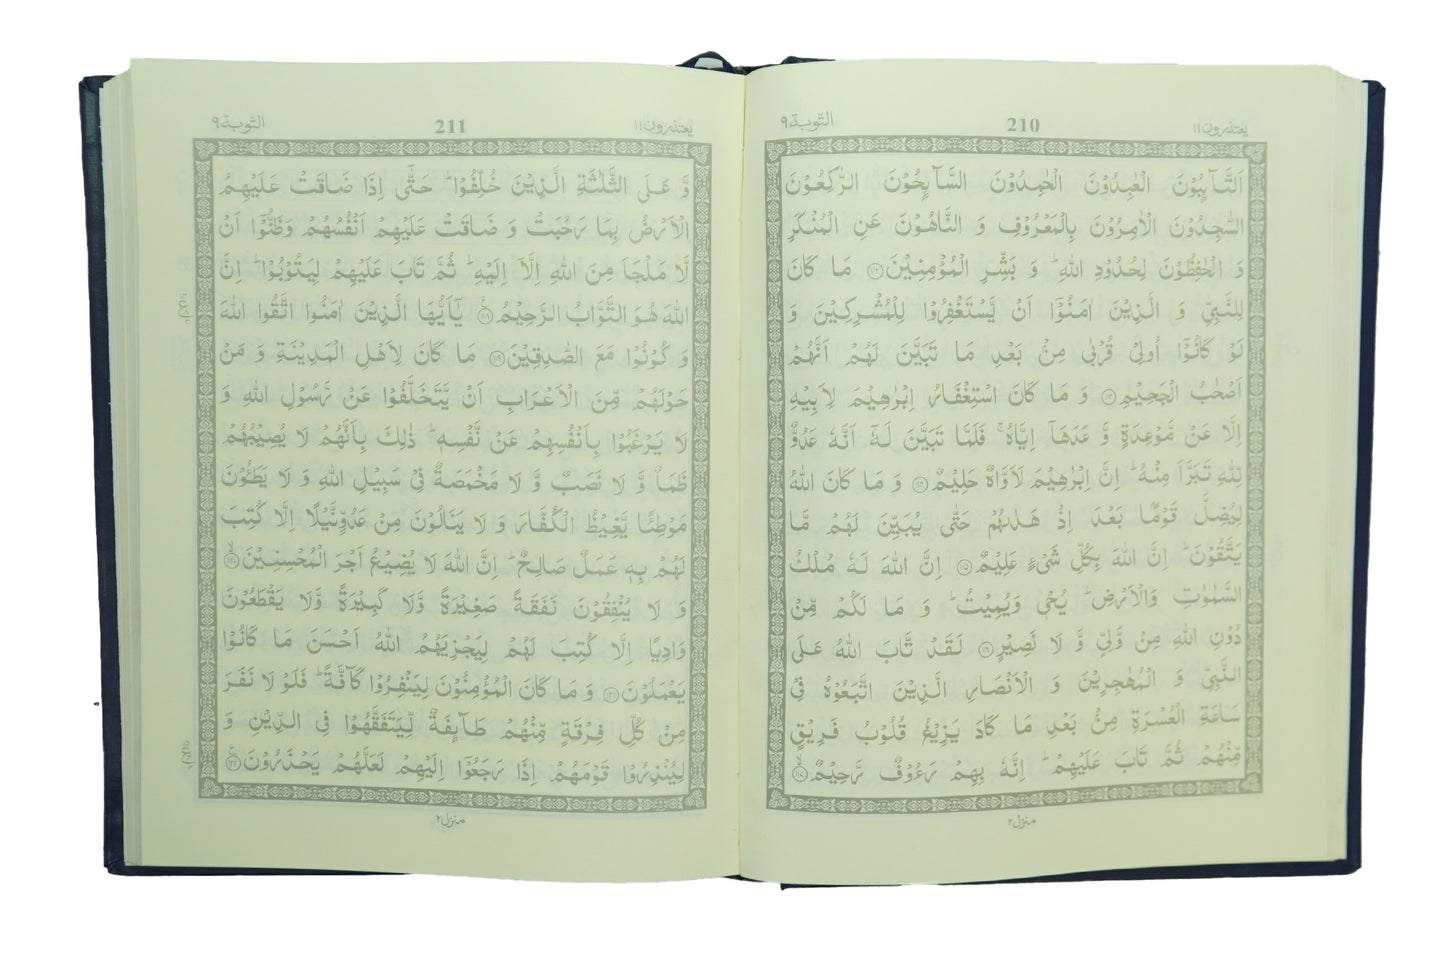 التوبة ٩
210
يعتذرون ١١
اَلتَّآىِٕبُوْنَ الْعٰبِدُوْنَ الْحٰمِدُوْنَ السَّآىِٕحُوْنَ الرّٰكِعُوْنَ
السّٰجِدُوْنَ الْاٰمِرُوْنَ بِالْمَعْرُوْفِ وَ النَّاهُوْنَ عَنِ الْمُنْكَرِ
وَ الْحٰفِظُوْنَ لِحُدُوْدِ اللّٰهِؕ وَ بَشِّرِ الْمُؤْمِنِیْنَ ۝۱۱۲ مَا كَانَ
لِلنَّبِیِّ وَ الَّذِیْنَ اٰمَنُوْۤا اَنْ یَّسْتَغْفِرُوْا لِلْمُشْرِكِیْنَ وَ
لَوْ كَانُوْۤا اُولِیْ قُرْبٰی مِنْۢ بَعْدِ مَا تَبَیَّنَ لَهُمْ اَنَّهُمْ
اَصْحٰبُ الْجَحِیْمِ ۝۱۱۳ وَ مَا كَانَ اسْتِغْفَارُ اِبْرٰهِیْمَ لِاَبِیْهِ
اِلَّا عَنْ مَّوْعِدَةٍ وَّ عَدَهَاۤ اِیَّاهُۚ فَلَمَّا تَبَیَّنَ لَهٗۤ اَنَّهٗ عَدُوٌّ
لِّلّٰهِ تَبَرَّاَ مِنْهُؕ اِنَّ اِبْرٰهِیْمَ لَاَوَّاهٌ حَلِیْمٌ ۝۱۱۴ وَ مَا كَانَ اللّٰهُ
لِیُضِلَّ قَوْمًۢا بَعْدَ اِذْ هَدٰىهُمْ حَتّٰی یُبَیِّنَ لَهُمْ مَّا
یَتَّقُوْنَؕ اِنَّ اللّٰهَ بِكُلِّ شَیْءٍ عَلِیْمٌ ۝۱۱۵ اِنَّ اللّٰهَ لَهٗ مُلْكُ
السَّمٰوٰتِ وَالْاَرْضِؕ یُحْیٖ وَیُمِیْتُؕ وَ مَا لَكُمْ مِّنْ
دُوْنِ اللّٰهِ مِنْ وَّلِیٍّ وَّ لَا نَصِیْرٍ ۝۱۱۶ لَقَدْ تَّابَ اللّٰهُ عَلَی
النَّبِیِّ وَ الْمُهٰجِرِیْنَ وَ الْاَنْصَارِ الَّذِیْنَ اتَّبَعُوْهُ فِیْ
سَاعَةِ الْعُسْرَةِ مِنْۢ بَعْدِ مَا كَادَ یَزِیْغُ قُلُوْبُ فَرِیْقٍ
مِّنْهُمْ ثُمَّ تَابَ عَلَیْهِمْؕ اِنَّهٗ بِهِمْ رَءُوْفٌ رَّحِیْمٌ ۝۱۱۷
منزل ۲
التوبة ٩
211
يعتذرون ١١
وَّ عَلَی الثَّلٰثَةِ الَّذِیْنَ خُلِّفُوْاؕ حَتّٰۤی اِذَا ضَاقَتْ عَلَیْهِمُ
الْاَرْضُ بِمَا رَحُبَتْ وَ ضَاقَتْ عَلَیْهِمْ اَنْفُسُهُمْ وَظَنُّوْۤا اَنْ
لَّا مَلْجَاَ مِنَ اللّٰهِ اِلَّاۤ اِلَیْهِؕ ثُمَّ تَابَ عَلَیْهِمْ لِیَتُوْبُوْاؕ اِنَّ
اللّٰهَ هُوَ التَّوَّابُ الرَّحِیْمُ ۝۱۱۸ یٰۤاَیُّهَا الَّذِیْنَ اٰمَنُوا اتَّقُوا اللّٰهَ
وَ كُوْنُوْا مَعَ الصّٰدِقِیْنَ ۝۱۱۹ مَا كَانَ لِاَهْلِ الْمَدِیْنَةِ وَ مَنْ
حَوْلَهُمْ مِّنَ الْاَعْرَابِ اَنْ یَّتَخَلَّفُوْا عَنْ رَّسُوْلِ اللّٰهِ وَ
لَا یَرْغَبُوْا بِاَنْفُسِهِمْ عَنْ نَّفْسِهٖؕ ذٰلِكَ بِاَنَّهُمْ لَا یُصِیْبُهُمْ
ظَمَاٌ وَّ لَا نَصَبٌ وَّ لَا مَخْمَصَةٌ فِیْ سَبِیْلِ اللّٰهِ وَ لَا یَطَـُٔوْنَ
مَوْطِئًا یَّغِیْظُ الْكُفَّارَ وَ لَا یَنَالُوْنَ مِنْ عَدُوٍّ نَّیْلًا اِلَّا كُتِبَ
لَهُمْ بِهٖ عَمَلٌ صَالِحٌؕ اِنَّ اللّٰهَ لَا یُضِیْعُ اَجْرَ الْمُحْسِنِیْنَ ۝۱۲۰
وَ لَا یُنْفِقُوْنَ نَفَقَةً صَغِیْرَةً وَّلَا كَبِیْرَةً وَّلَا یَقْطَعُوْنَ
وَادِیًا اِلَّا كُتِبَ لَهُمْ لِیَجْزِیَهُمُ اللّٰهُ اَحْسَنَ مَا كَانُوْا
یَعْمَلُوْنَ ۝۱۲۱ وَ مَا كَانَ الْمُؤْمِنُوْنَ لِیَنْفِرُوْا كَآفَّةًؕ فَلَوْ لَا نَفَرَ
مِنْ كُلِّ فِرْقَةٍ مِّنْهُمْ طَآىِٕفَةٌ لِّیَتَفَقَّهُوْا فِی الدِّیْنِ وَ
لِیُنْذِرُوْا قَوْمَهُمْ اِذَا رَجَعُوْۤا اِلَیْهِمْ لَعَلَّهُمْ یَحْذَرُوْنَ ۝۱۲۲
منزل ۲